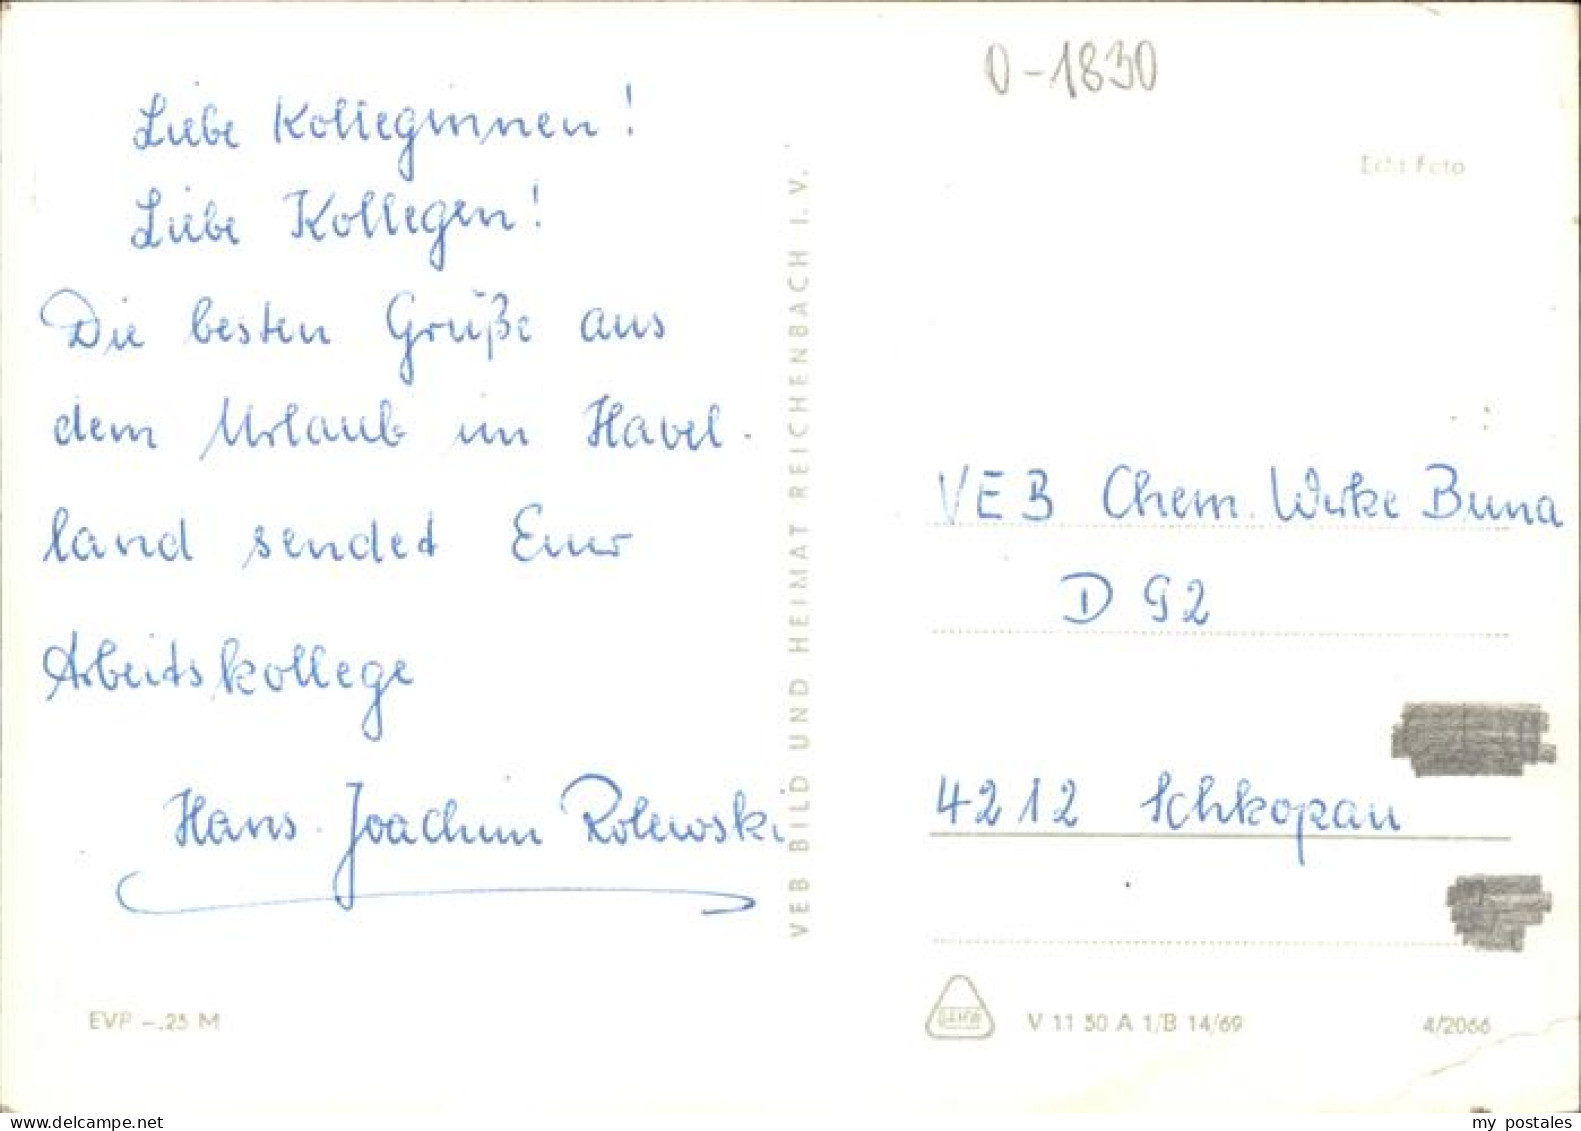 0-1830
Echt Foto
Liebe Kolleginnen!
Liebe Kollegen!
Die besten Grüße aus
dem Urlaub im Havel-
land sendet Euer
Arbeitskollege
Hans-Joachim Rolewski
VEB BILD UND HEIMAT REICHENBACH I. V.
VEB Chem. Werke Buna
D 92
4212 Schkopau
EVP -.25 M
V 11 50 A 1/B 14/69
4/2066
© oldthing.de
my postales